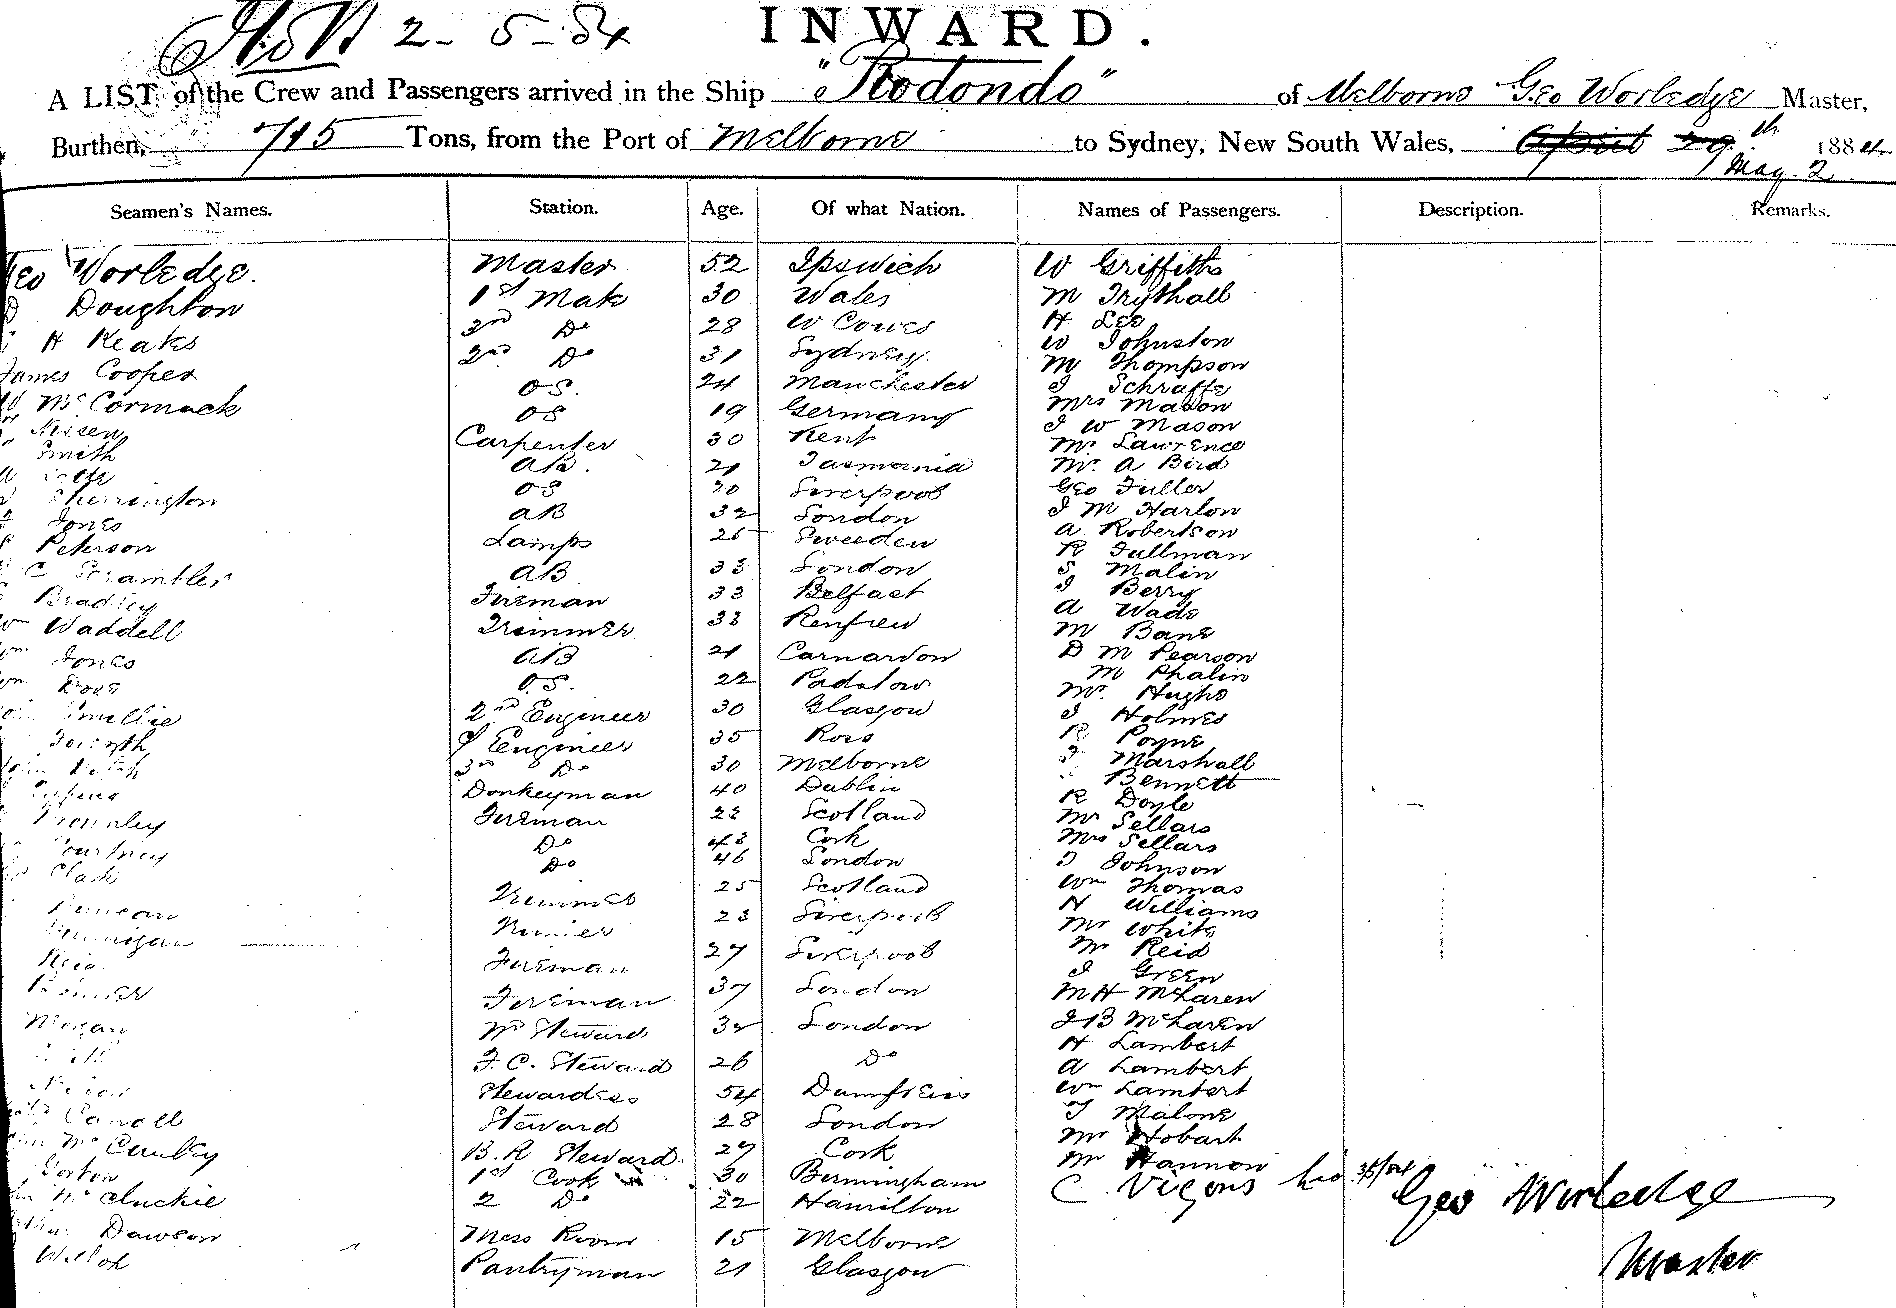 2-5-84 INWARD.
A LIST of the Crew and Passengers arrived in the Ship "Rodondo" of Melborne Geo Worledge Master,
Burthen, 715 Tons, from the Port of Melborne to Sydney, New South Wales, April 29th 1884
May 2
Seamen's Names. Station. Age. Of what Nation. Names of Passengers. Description. Remarks.
Geo Worledge. Master 52 Ipswich W Griffiths
Doughton 1st Mate 30 Wales M Trythall
H Keaks 2nd Do 28 W Cowes H Lee
James Cooper 2nd Do 31 Sydney W Johnston
McCormack OS. 24 Manchester M Thompson
Nissen OS 19 Germany J Schraffe
Smith Carpenter 30 Kent Mrs Mason
AB. 21 Tasmania J W Mason
Sherrington OS 20 Liverpool Mr Lawrence
Jones AB 32 London Mr A Bird
Peterson Lamps 25 Sweeden Geo Fuller
C Scrambler AB 33 London J M Harlon
Bradley Fireman 33 Belfast A Robertson
Waddell Trimmer 33 Renfrew R Fullman
Jones AB 21 Carnarvon S Malin
OS. 22 Padstow J Berry
Smellie 2nd Engineer 30 Glasgow A Wade
Forsyth 1 Engineer 35 Ross M Bane
John 3rd Do 30 Melborne D M Pearson
Donkeyman 40 Dublin M Phalin
Fireman 22 Scotland Mr Hughs
Courtney Do 43 Cork J Holmes
Clark Do 46 London R Poyne
Duncan Trimmer 25 Scotland J Marshall
Finnigan 23 Liverpool Bennett
Reid Fireman 27 Liverpool R Doyle
Fireman 37 London Mr Sellars
Morgan Steward 32 London Mrs Sellars
F.C. Steward 26 Do J Johnson
Stewardess 54 Dumfreis Wm Thomas
Carroll Steward 28 London H Williams
McCaulay B.R Steward 27 Cork Mr White
Gorton 1st Cook 30 Birmingham Mr Reid
McCluckie 2 Do 22 Hamilton J Green
Dawson Mess Room 15 Melborne M H McLaren
Pantryman 21 Glasgow J B McLaren
H Lambert
A Lambert
Wm Lambert
J Malone
Mr Hobart
Mr Hannon
C Vigors
Geo Worledge
Master